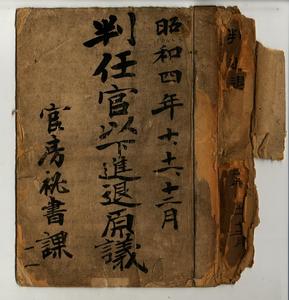 昭和四年十、十一、十二月
判任官以下進退原議
官房秘書課